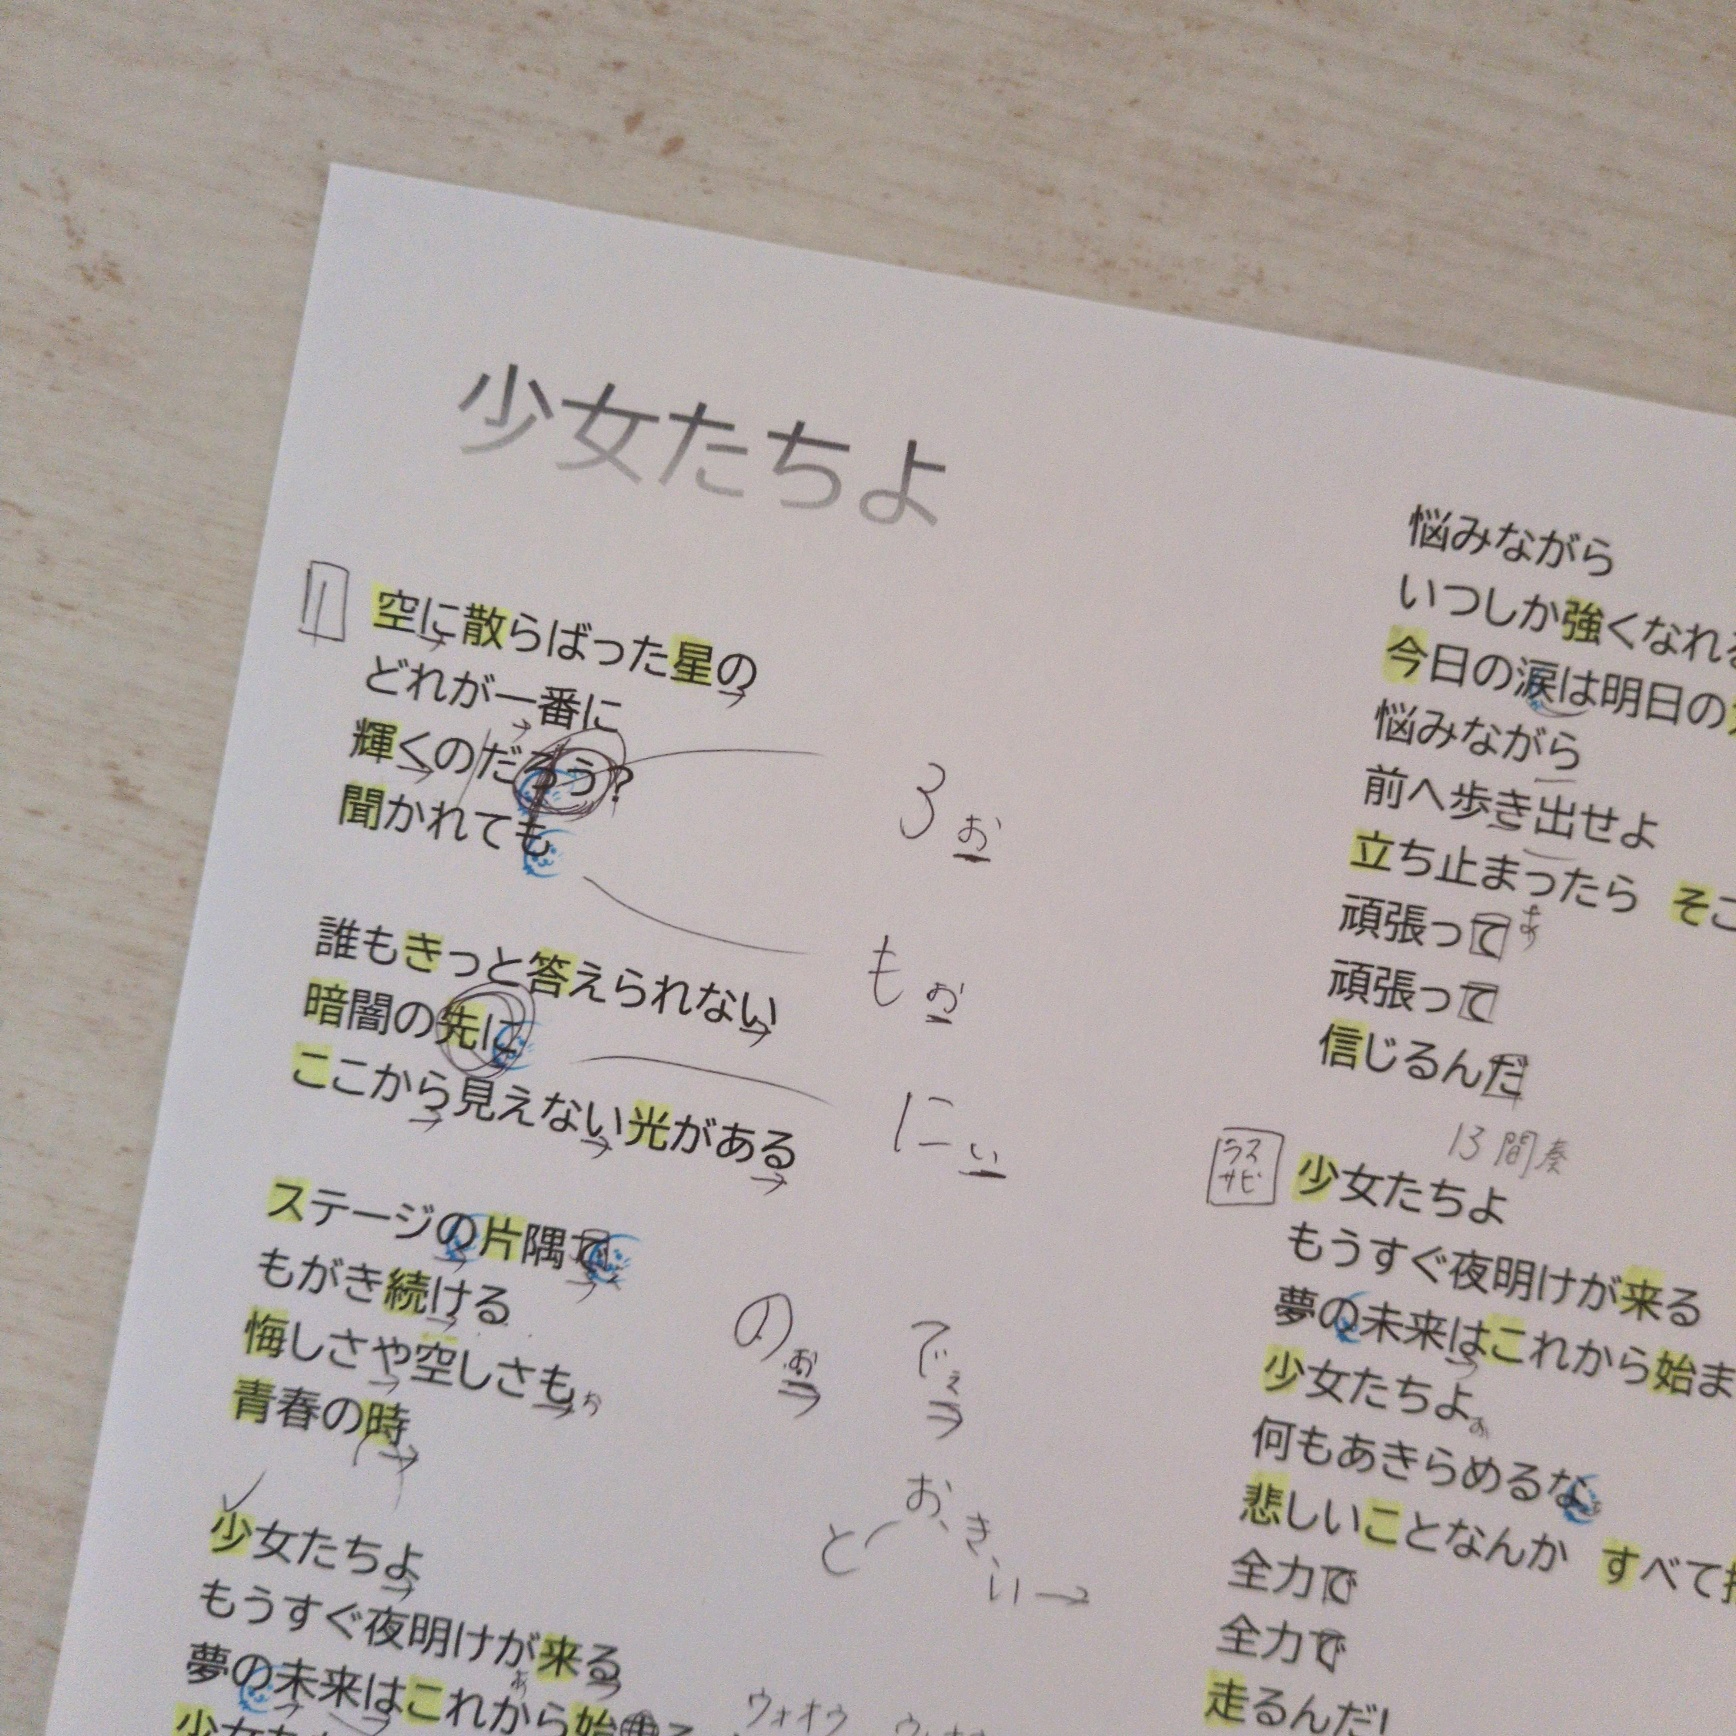 少女たちよ
1
空に散らばった星の
どれが一番に
輝くのだろう?
聞かれても
ろぉ
もぉ
誰もきっと答えられない
暗闇の先に
ここから見えない光がある
にぃ
ステージの片隅で
もがき続ける
悔しさや空しさも
お
青春の時
のぉ
でぇ
と お き い→
少女たちよ
もうすぐ夜明けが来る
夢の未来はこれから始まる
あ
ウォオウ
悩みながら
いつしか強くなれる
今日の涙は明日の
悩みながら
前へ歩き出せよ
立ち止まったら そこ
頑張って
頑張って
信じるんだ
13 間奏
ラス
サビ
少女たちよ
もうすぐ夜明けが来る
夢の未来はこれから始ま
少女たちよ
お
何もあきらめるな
悲しいことなんか すべて
全力で
全力で
走るんだ!